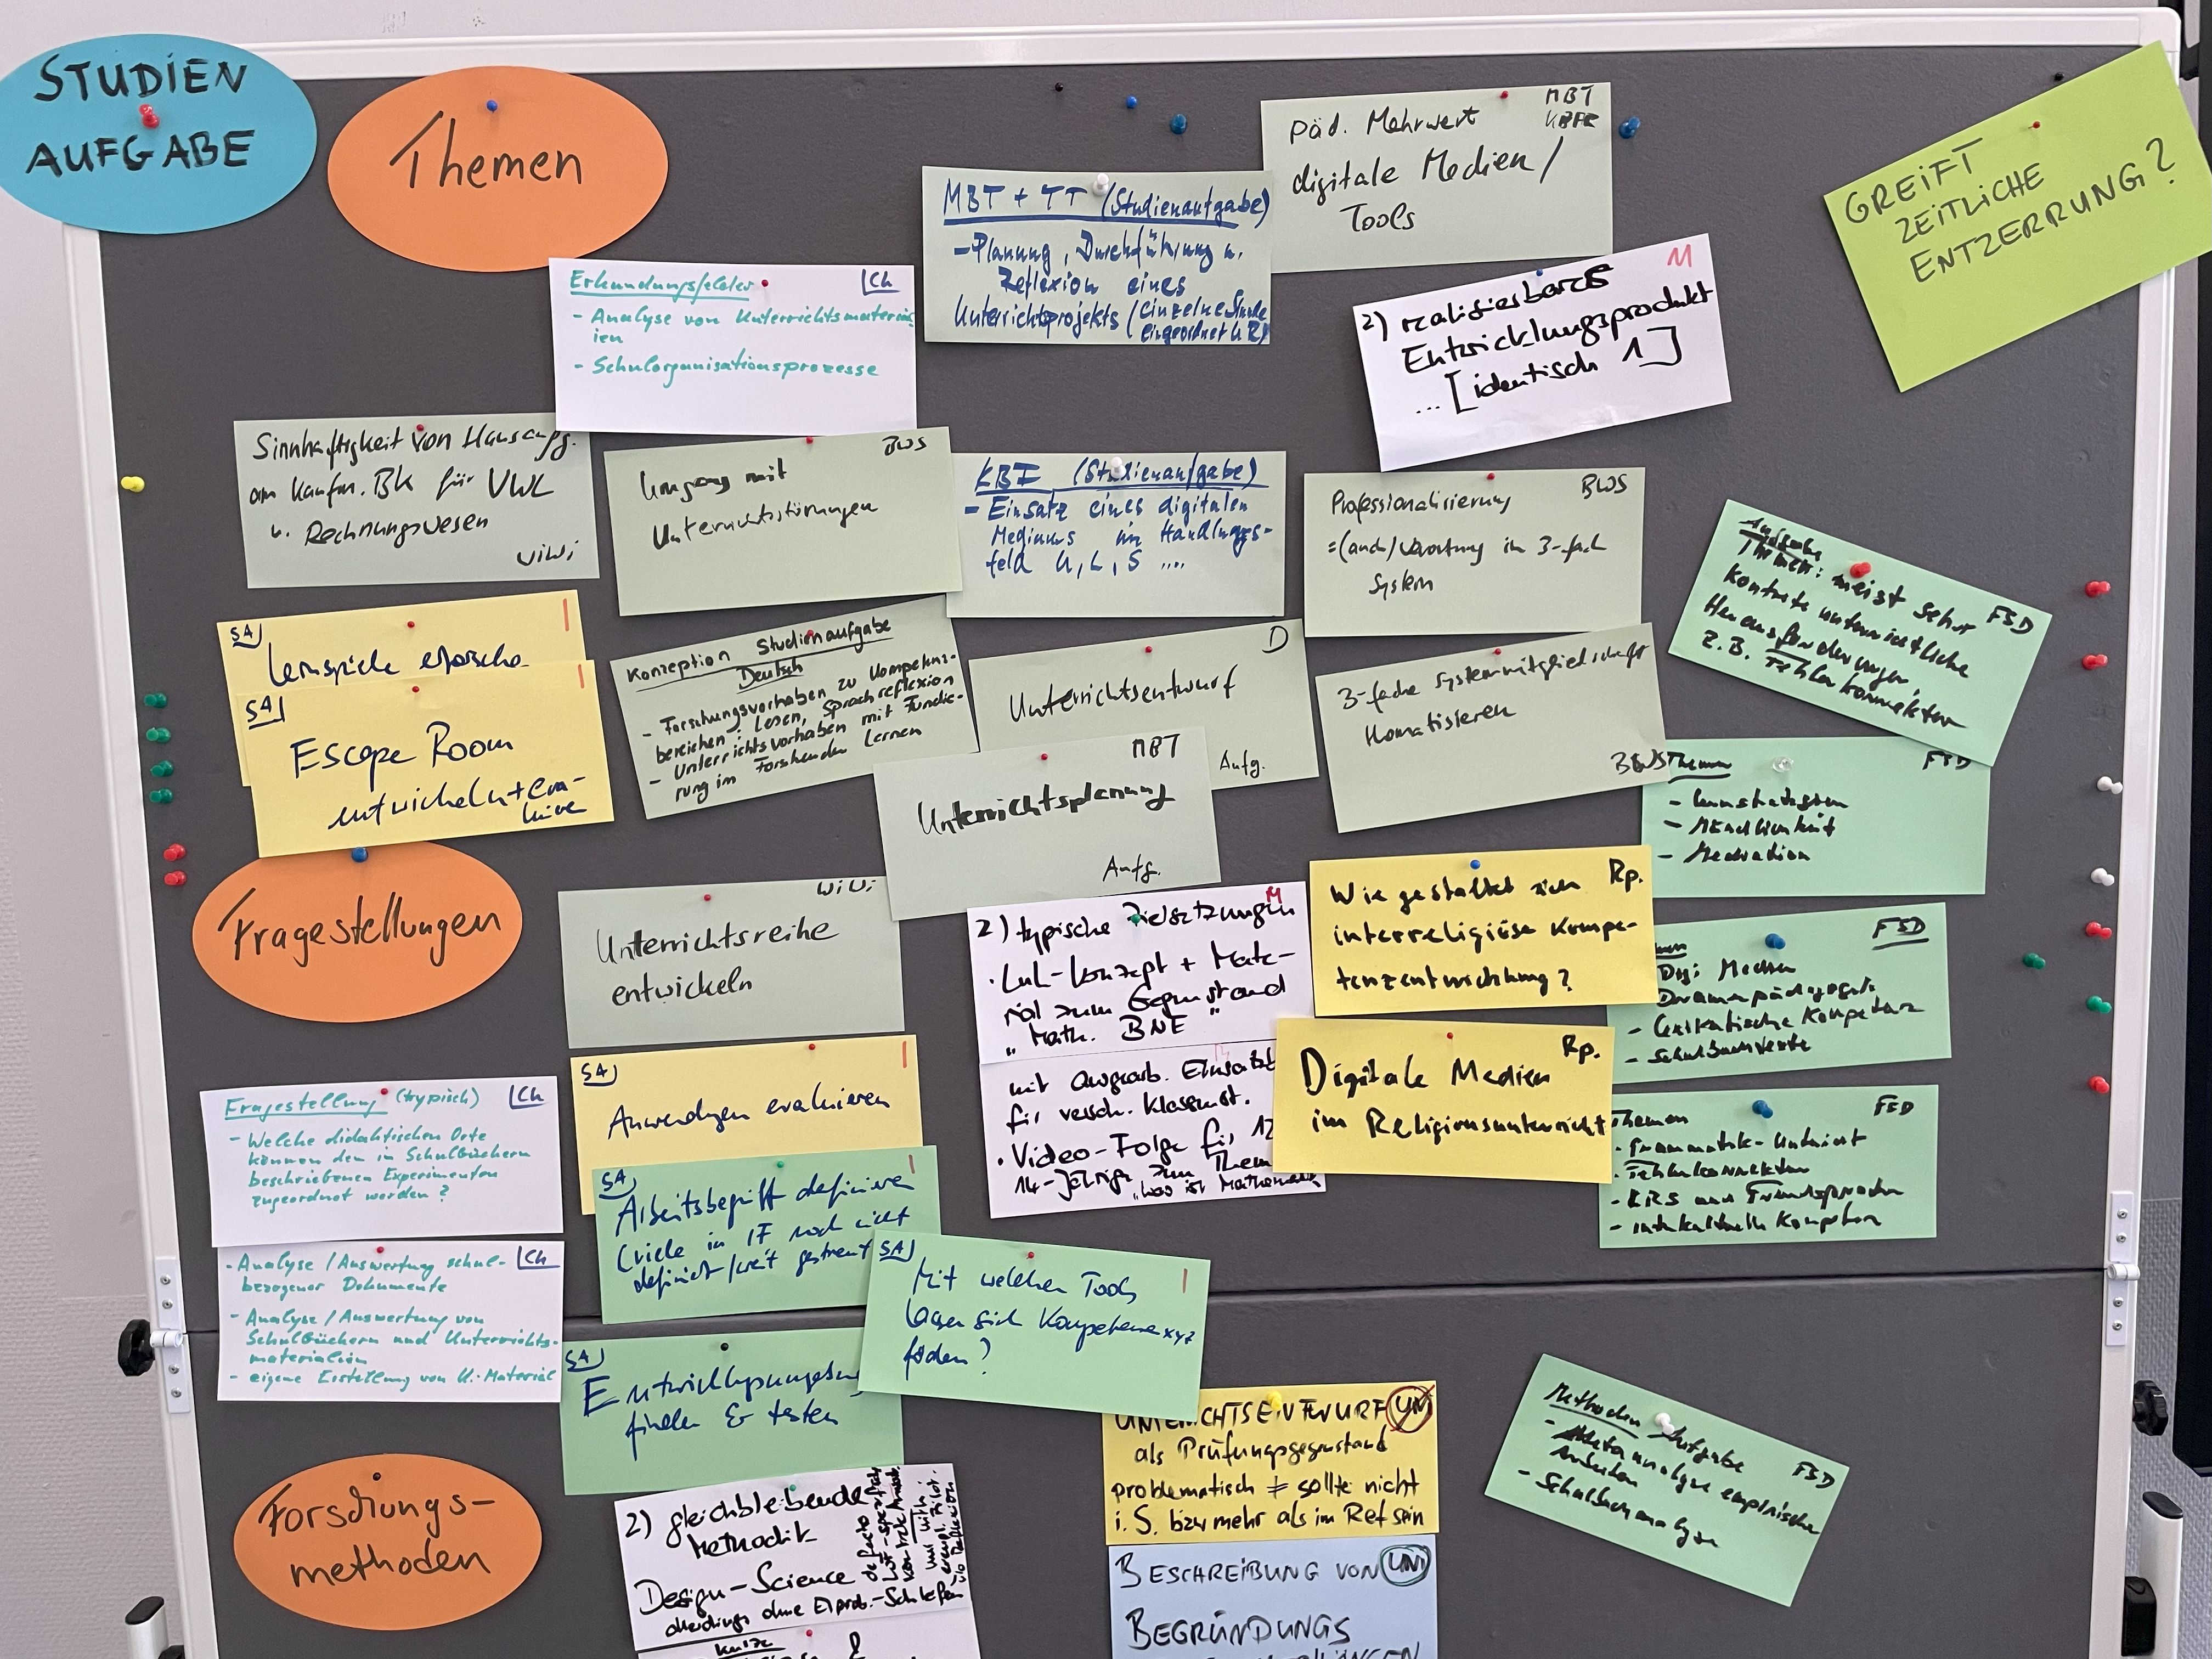 STUDIEN
AUFGABE
Themen
Päd. Mehrwert
MBT
digitale Medien/
Tools
GREIFT
ZEITLICHE
ENTZERRUNG?
MBT + TT (Studienaufgabe)
- Planung, Durchführung u.
Reflexion eines
Unterrichtsprojekts (einzelne Stunde
eingeordnet
Erkundungsfelder
Ch
- Analyse von Unterrichtsmaterial
ien
- Schulorganisationsprozesse
M
2) realisierbares
Entwicklungsprodukt
... [identisch 1]
Sinnhaftigkeit von Hausaufg.
am kaufm. BK für VWL
u. Rechnungswesen
WiWi
BWS
Umgang mit
Unterrichtsstörungen
KBI (Studienaufgabe)
- Einsatz eines digitalen
Mediums im Handlungs-
feld U, L, S ....
Professionalisierung
BWS
=(auch) Verortung in 3-fach
System
FSD
Themen: meist sehr
konkrete unterrichtliche
Herausforderungen,
z.B. Fehlerkorrektur
SA
Lernspiele
SA
Escape Room
entwickeln + eva-
Konzeption Studienaufgabe
Deutsch
- Forschungsvorhaben zu Kompetenz-
bereichen: Lesen, Sprachreflexion
- Unterrichtsvorhaben mit Fundie-
rung im Forschenden Lernen
D
Unterrichtsentwurf
Aufg.
3-fache Systemmitgliedschaft
BWS
MBT
Unterrichtsplanung
Aufg.
Themen
FSD
- Lernstrategien
- Mündlichkeit
- Mediation
Fragestellungen
WiWi
Unterrichtsreihe
entwickeln
M
2) typische Zielsetzungen
· LuL-Konzept + Mate-
rial zum Gegenstand
"Math. BNE"
mit ausgearb. Einsatz
für versch. Klassenst.
· Video-Folge für 12
14-Jährige zum Thema
"Was ist Mathematik
Rp.
Wie gestaltet sich
interreligiöse Kompe-
tenzentwicklung?
FSD
Digi Medien
Dramapädagogik
- Lexikalische Kompetenz
- Schulbuchtexte
Rp.
Digitale Medien
im Religionsunterricht
Themen
FSD
- Grammatik-Unterricht
- Fehlerkorrektur
- LRS und Fremdsprache
- interkulturelle Kompetenz
Fragestellung (typisch)
Ch
- Welche didaktischen Orte
können den in Schulbüchern
beschriebenen Experimenten
zugeordnet werden?
SA
Anwendungen evaluieren
SA
Arbeitsbegriff definieren
(viele in IF noch nicht
definiert / weit gestreut
- Analyse / Auswertung schul-
Ch
bezogener Dokumente
- Analyse / Auswertung von
Schulbüchern und Unterrichts-
materialien
- eigene Erstellung von U.-Material
SA
Mit welchen Tools
lassen sich Kompetenzen xyz
fördern?
SA
Entwicklungsumgebung
finden & testen
UNTERRICHTSENTWURF
UNI
als Prüfungsgegenstand
problematisch ≠ sollte nicht
i. S. bzw mehr als im Ref sein
BESCHREIBUNG VON
UNI
BEGRÜNDUNGS
Methoden Aufgabe
FSD
- Metaanalyse empirische
Arbeiten
- Schulbuchanalyse
Forschungs-
methoden
2) gleichbleibende
Methodik
Design-Science
allerdings ohne Erprob.-Schleifen
kurze